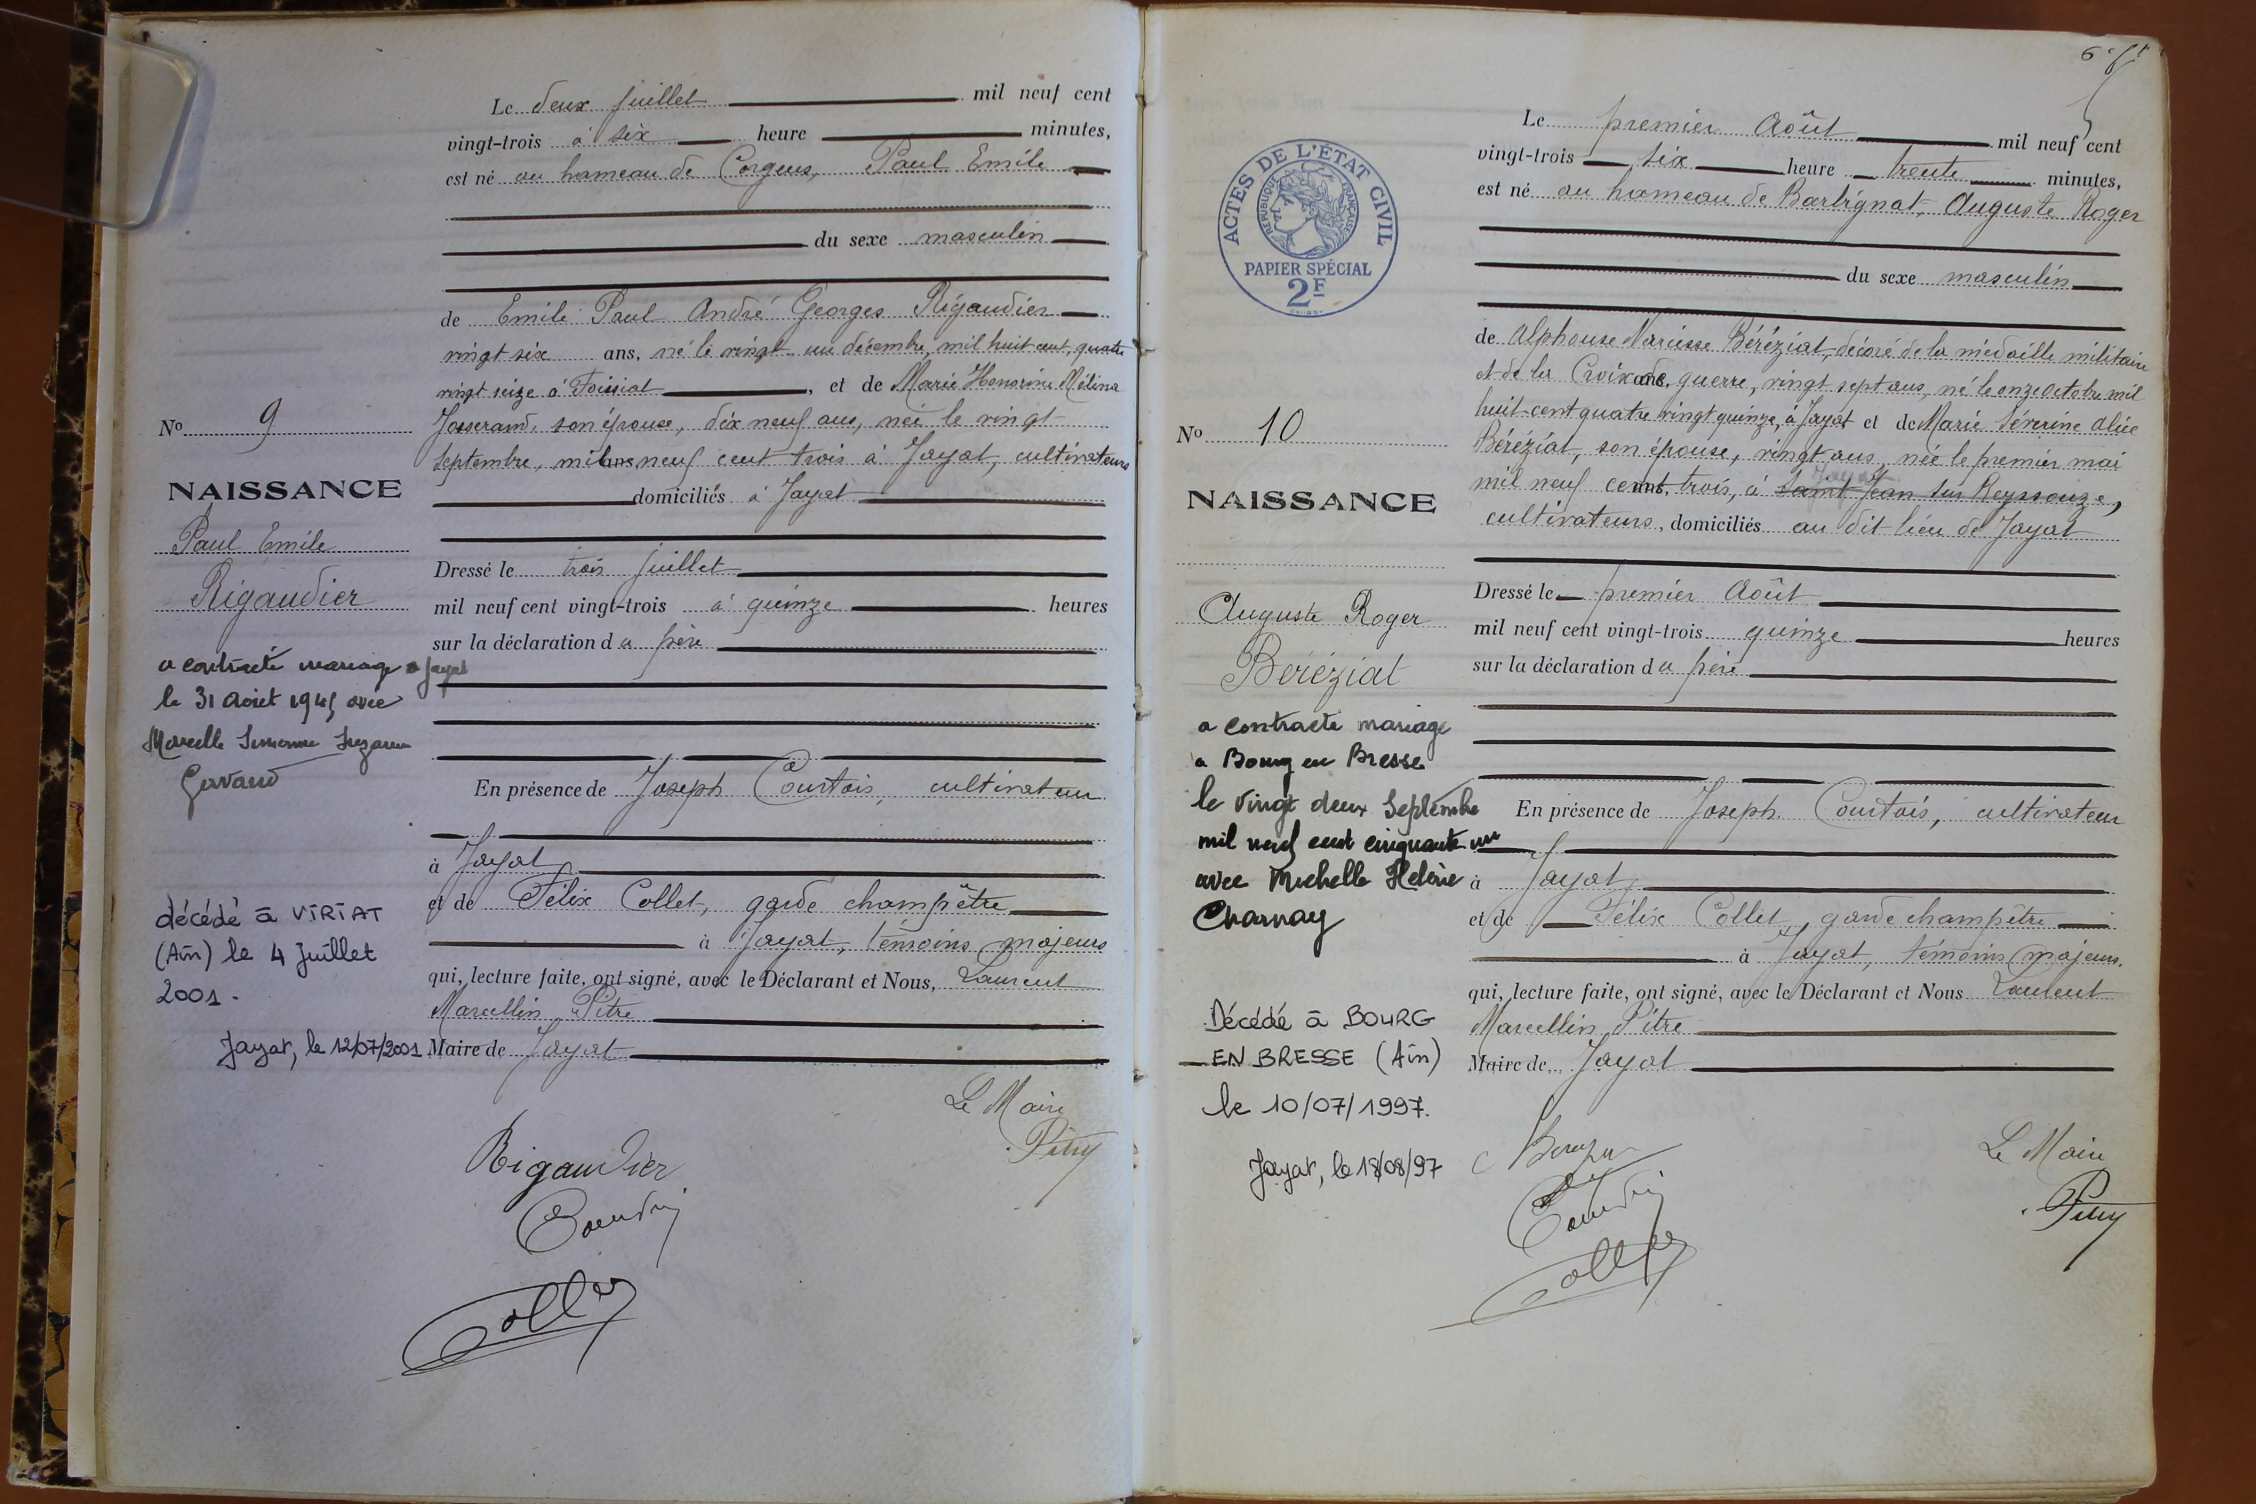 Le deux juillet mil neuf cent
vingt-trois à six heure minutes,
est né au hameau de Corgeus, Paul Emile
du sexe masculin
de Emile Paul André Georges Rigaudier
vingt six ans, né le vingt un décembre, mil huit cent, quatre
vingt seize à Foissiat, et de Marie Honorine Mélina
Josserand, son épouse, dix neuf ans, née le vingt
septembre, mil ans neuf cent trois à Jayat, cultivateurs
domiciliés à Jayat
Dressé le trois juillet
mil neuf cent vingt-trois à quinze heures
sur la déclaration du père
En présence de Joseph Courtois, cultivateur
à Jayat
et de Félix Collet, garde champêtre
à Jayat, témoins majeurs
qui, lecture faite, ont signé, avec le Déclarant et Nous, Laurent
Marcellin Pitre
Maire de Jayat
Le Maire
Rigaudier
No 9
NAISSANCE
Paul Emile
Rigaudier
a contracté mariage à Jayat
le 31 Août 1945 avec
Marcelle
Gervaud
décédé à VIRIAT
(Ain) le 4 Juillet
2001.
Jayat, le 12/07/2001
ACTES DE L'ÉTAT CIVIL
RÉPUBLIQUE FRANÇAISE
PAPIER SPÉCIAL
2F
Le premier Août mil neuf cent
vingt-trois six heure trente minutes,
est né au hameau de Barbignat, Auguste Roger
du sexe masculin
de Alphonse Narcisse Béréziat, décoré de la médaille militaire
et de la Croix de ans, guerre, vingt sept ans, né le onze octobre mil
huit-cent quatre vingt quinze, à Jayat et de Marie Séverine Alice
Béréziat, son épouse, vingt ans, née le premier mai
mil neuf cent ans, trois, à Saint Jean sur Reyssouze, Jayat
cultivateurs, domiciliés au dit lieu de Jayat
Dressé le premier Août
mil neuf cent vingt-trois quinze heures
sur la déclaration du père
En présence de Joseph Courtois, cultivateur
à Jayat
et de Félix Collet, garde champêtre
à Jayat, témoins majeurs.
qui, lecture faite, ont signé, avec le Déclarant et Nous Laurent
Marcellin Pitre
Maire de Jayat
Le Maire
No 10
NAISSANCE
Auguste Roger
Béréziat
a contracté mariage
a Bourg en Bresse
le vingt deux Septembre
mil neuf cent cinquante un
avec Michelle Helène
Charnay
Décédé à BOURG
EN BRESSE (Ain)
le 10/07/1997.
Jayat, le 18/08/97